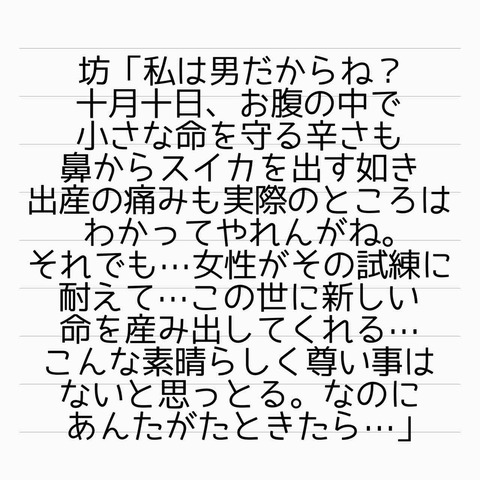 坊「私は男だからね？
十月十日、お腹の中で
小さな命を守る辛さも
鼻からスイカを出す如き
出産の痛みも実際のところは
わかってやれんがね。
それでも…女性がその試練に
耐えて…この世に新しい
命を産み出してくれる…
こんな素晴らしく尊い事は
ないと思っとる。なのに
あんたがたときたら…」